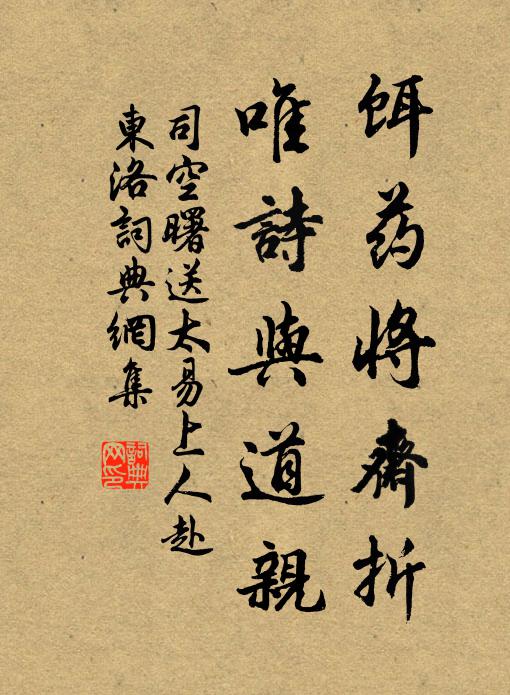 餌药将齋折
唯詩與道親
司空曙送太易上人赴
東洛詞典網集
詞典
网印